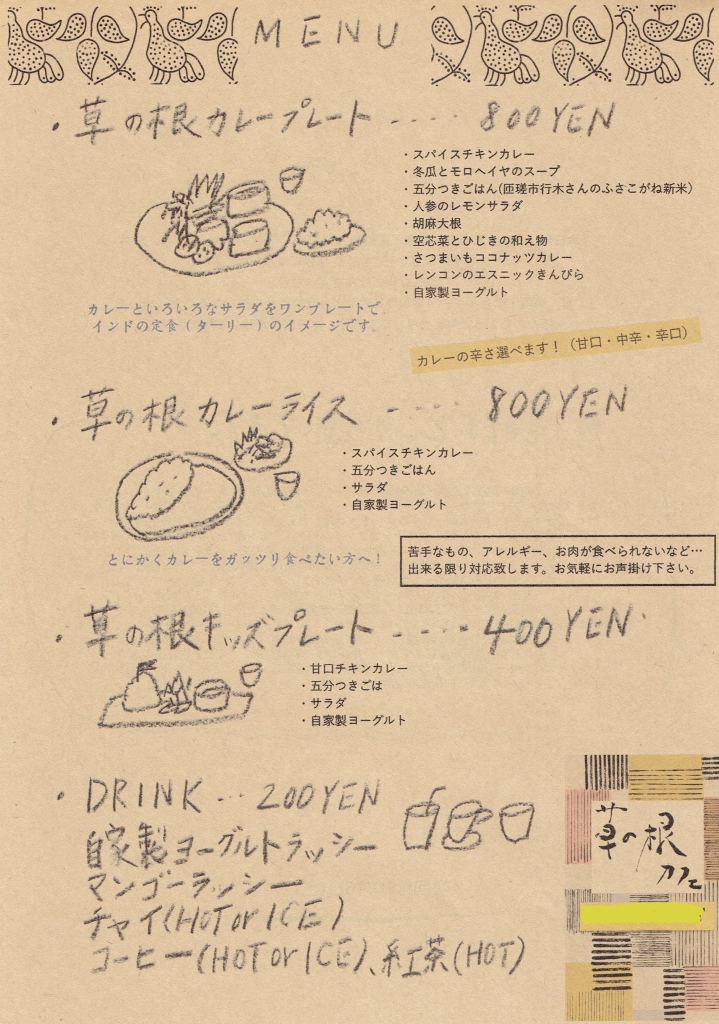 MENU
・草の根カレープレート‥‥800YEN
・スパイスチキンカレー
・冬瓜とモロヘイヤのスープ
・五分つきごはん(匝瑳市行木さんのふさこがね新米)
・人参のレモンサラダ
・胡麻大根
・空芯菜とひじきの和え物
・さつまいもココナッツカレー
・レンコンのエスニックきんぴら
・自家製ヨーグルト
カレーといろいろなサラダをワンプレートで。
インドの定食(ターリー)のイメージです。
カレーの辛さ選べます！（甘口・中辛・辛口）
・草の根カレーライス‥‥800YEN
・スパイスチキンカレー
・五分つきごはん
・サラダ
・自家製ヨーグルト
とにかくカレーをガッツリ食べたい方へ！
苦手なもの、アレルギー、お肉が食べられないなど…
出来る限り対応致します。お気軽にお声掛け下さい。
・草の根キッズプレート‥‥400YEN
・甘口チキンカレー
・五分つきごは
・サラダ
・自家製ヨーグルト
・DRINK…200YEN
自家製ヨーグルトラッシー
マンゴーラッシー
チャイ(HOT or ICE)
コーヒー(HOT or ICE)、紅茶(HOT)
草の根
カフェ